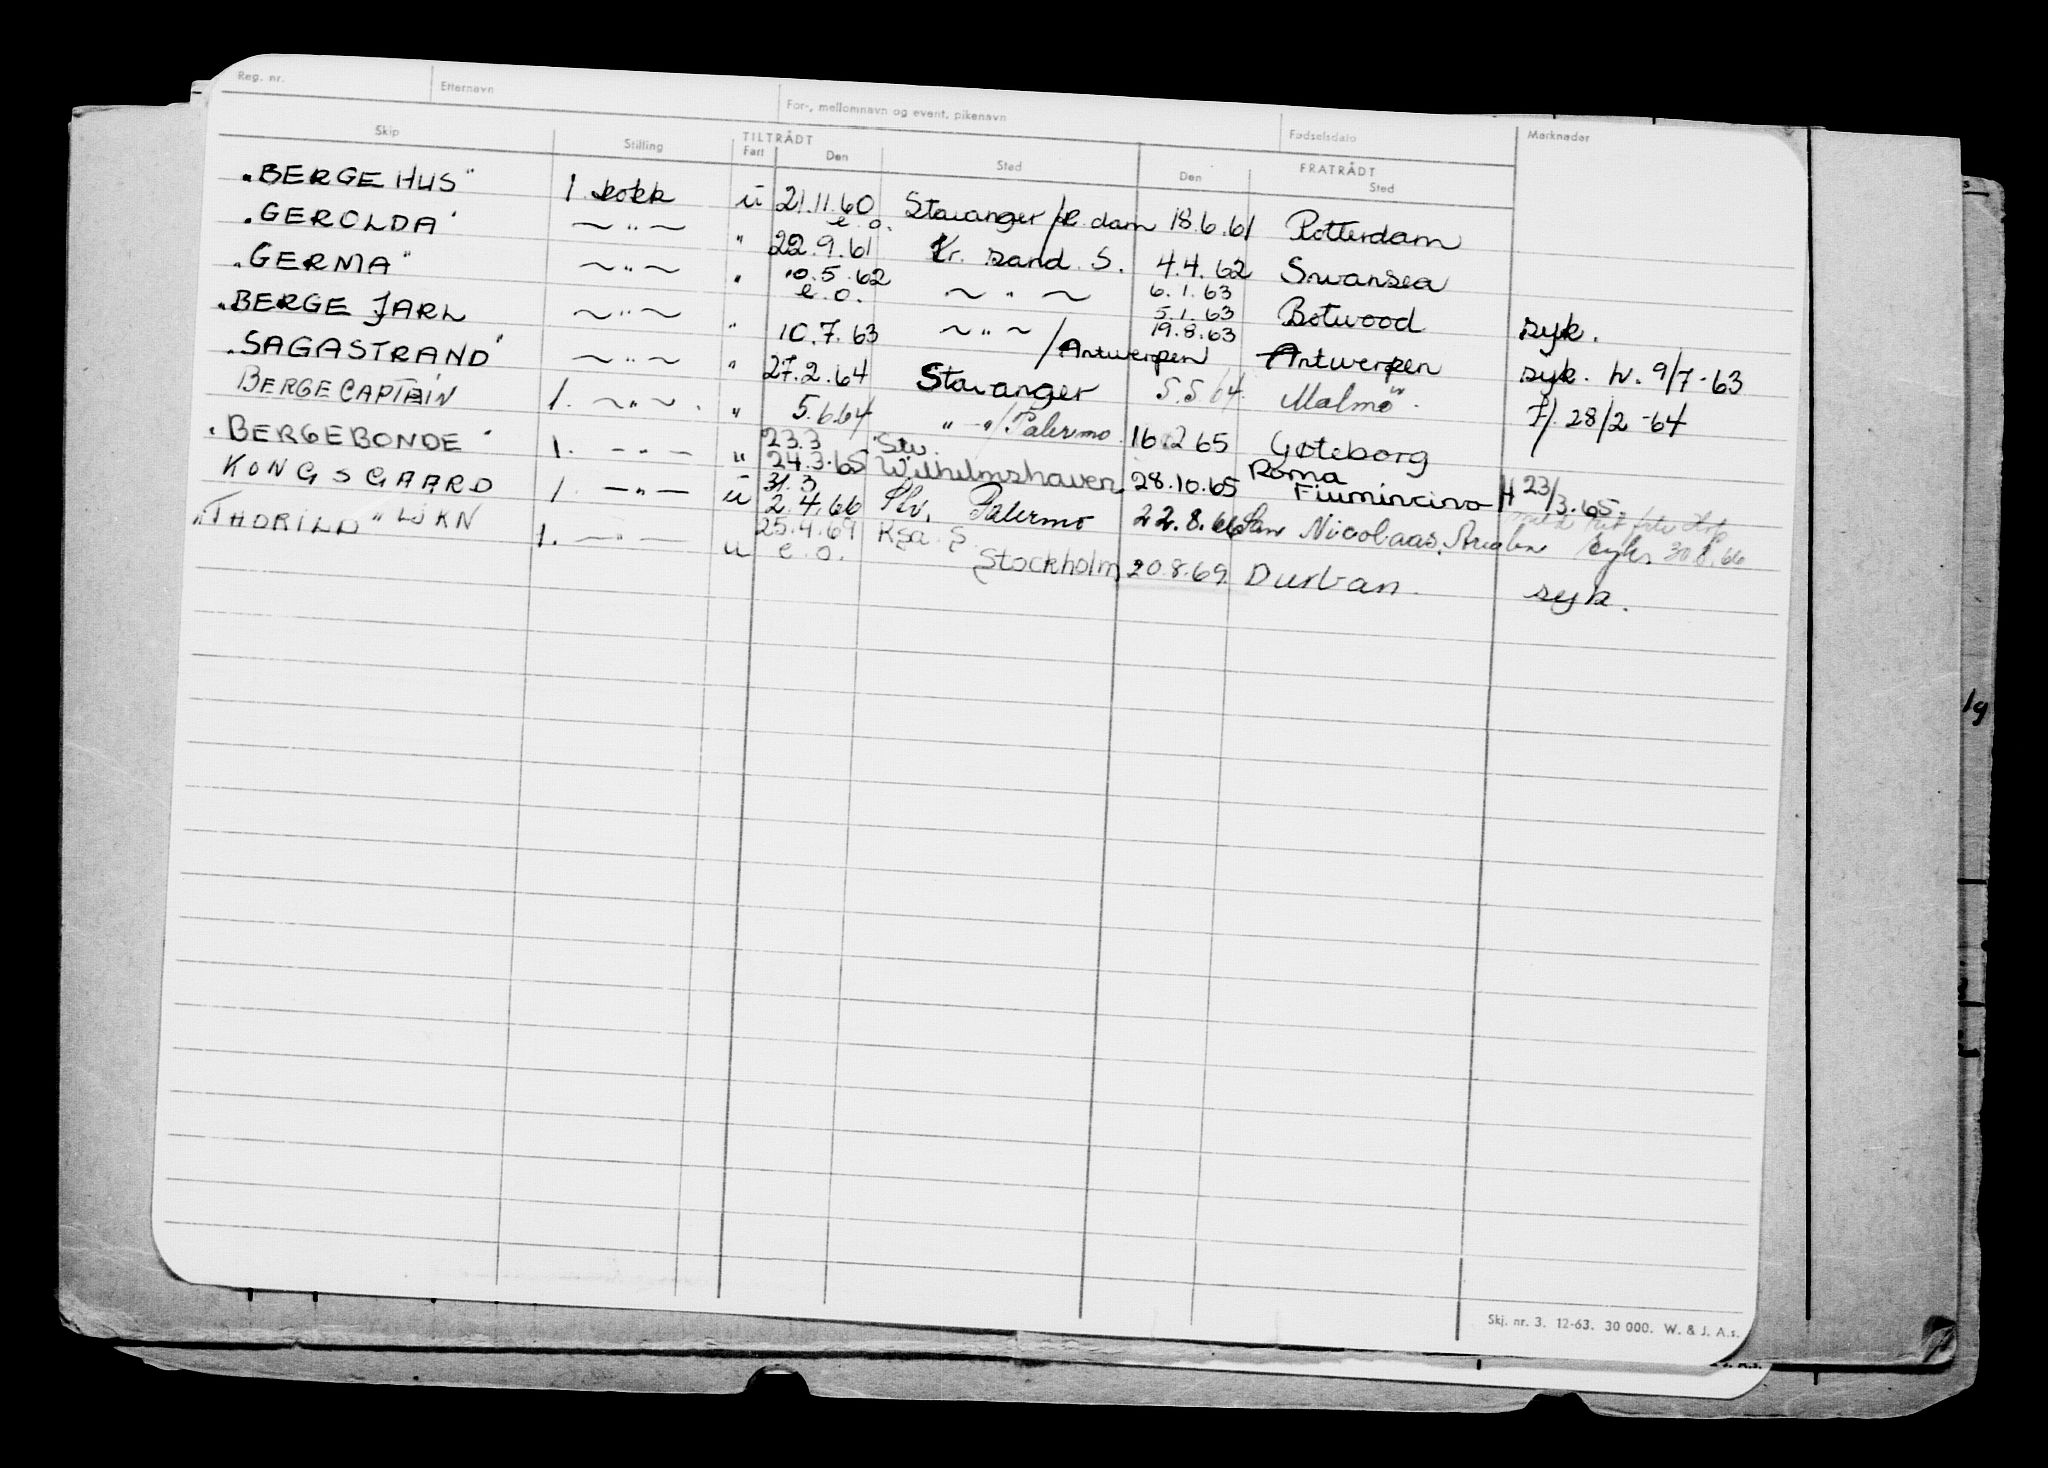 Reg. nr. Etternavn For-, mellomnavn og event. pikenavn Fødselsdato Merknader
Skip Stilling TILTRÅDT Fart Den Sted FRATRÅDT Den Sted
"BERGE HUS" 1. kokk u 21.11.60 e.o. Stavanger/R.dam 18.6.61 Rotterdam
"GEROLDA" ~ " ~ " 22.9.61 Kr. sand. S. 4.4.62 Swansea
"GERMA" ~ " ~ " 10.5.62 e.o. ~ " ~ 6.1.63 5.1.63 Botwood syk.
"BERGE JARL ~ " ~ " 10.7.63 ~ " ~ /Antwerpen 19.8.63 Antwerpen syk. h. 9/7-63
"SAGASTRAND" ~ " ~ " 27.2.64 Stavanger 5.5.64 Malmö. 7/. 28/2-64
BERGECAPTAIN 1. ~ " ~ . " 5.6.64 " - " /Palermo 16.12.65 Gøteborg
"BERGEBONDE" 1. - " - " 23.3 24.3.65 Stv. Wilhelmshaven 28.10.65 Roma Fiumincino H 23/3.65.
KONGSGAARD 1. - " - u 31.3 2.4.66 Stv. Palermo 22.8.66 San Nicolaas, syk. 30.8.66
"THORILD" LJKN 1. - " - u 25.4.69 e.o. Ksa. S. Stockholm 20.8.69 Durban. syk.
19
Skj. nr. 3. 12-63. 30 000. W. & J. A.s.